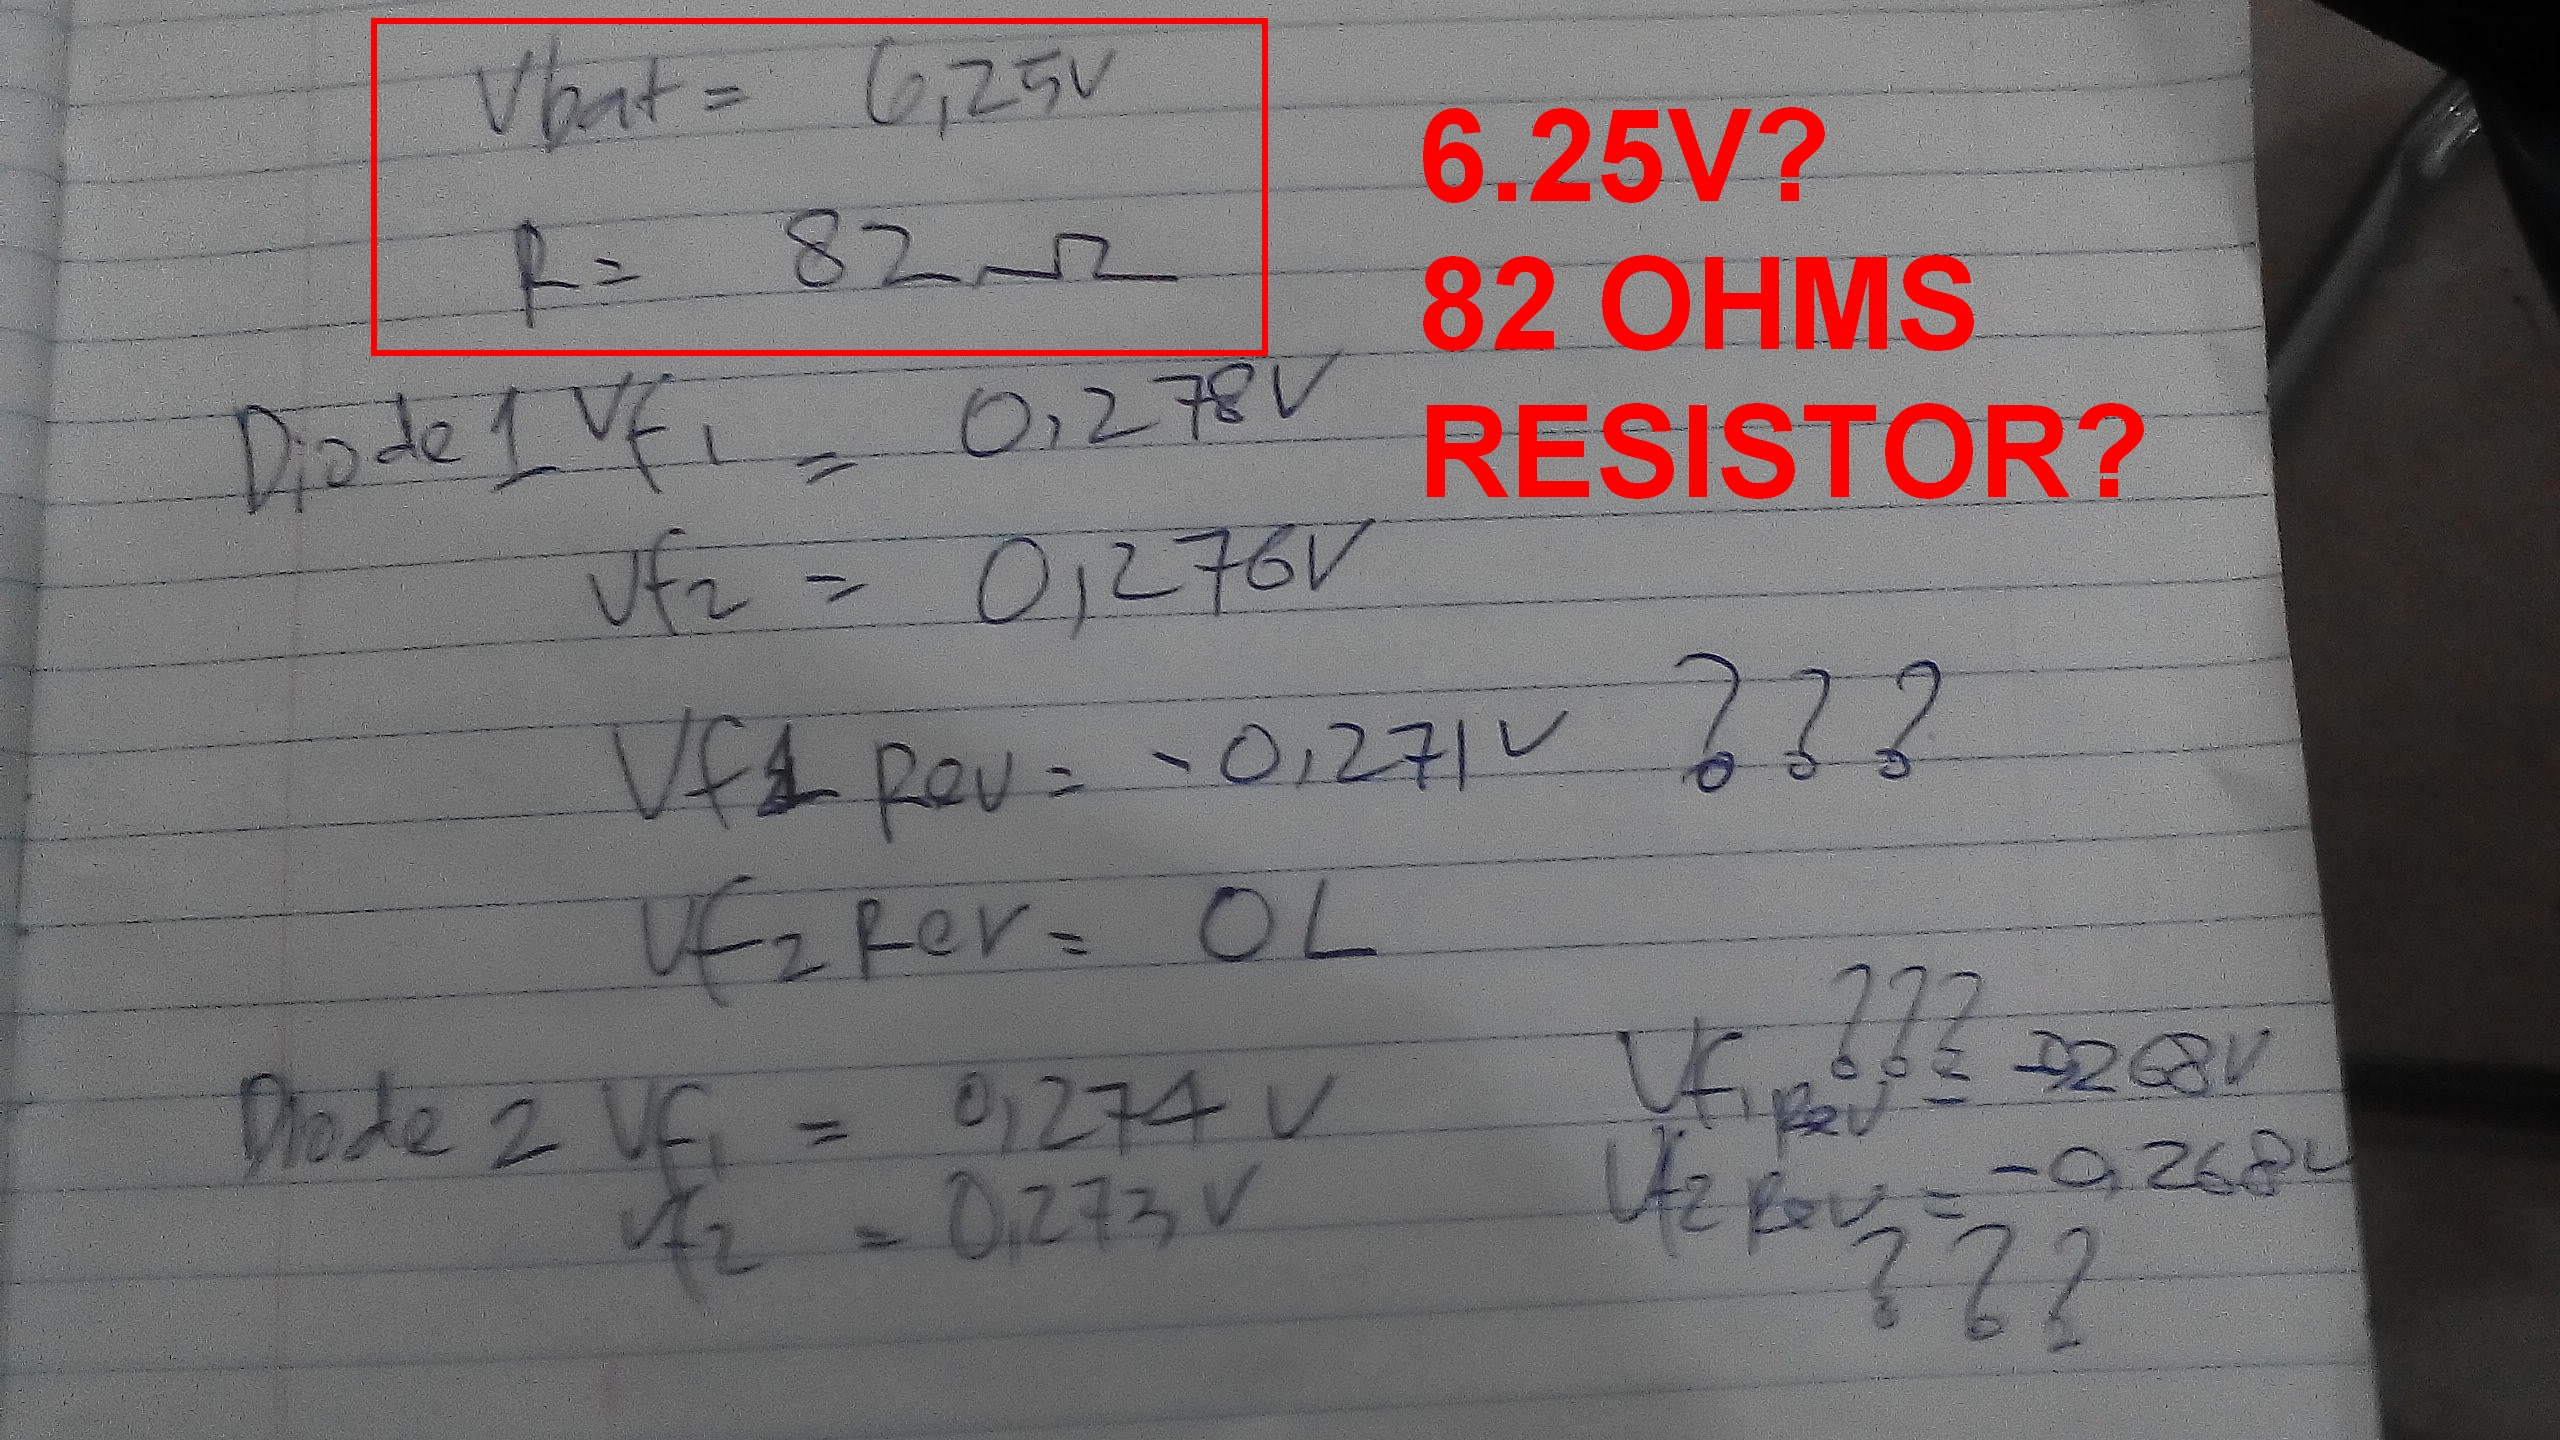 Vbat = 6,25V
R = 82 Ω
6.25V?
82 OHMS
RESISTOR?
Diode 1 Vf1 = 0,278V
Vf2 = 0,276V
Vf1 Rev = -0,271V ???
Vf2 Rev = OL
???
Diode 2 Vf1 = 0,274V
Vf2 = 0,273V
Vf1 Rev = -0268V
Vf2 Rev = -0,268V
???